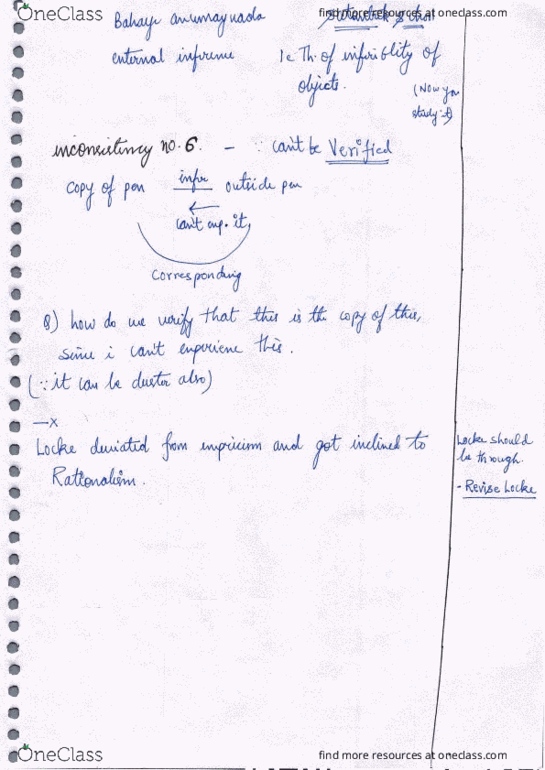 OneClass
find more resources at oneclass.com
Bahaye anumaya vada
enternal inference i.e Th. of inferiblity of
objects.
(Now you
study it)
inconsistency no. 6. - ∵ can't be Verified
Copy of pen infer outside pen
←
can't exp. it,
Corresponding
Q) how do we verify that this is the copy of this,
since i can't experiene this.
(∵ it can be duster also)
—x
Locke deviated from empricism and got inclined to
Rationalism.
Locke should
be through.
- Revise Locke
OneClass
find more resources at oneclass.com